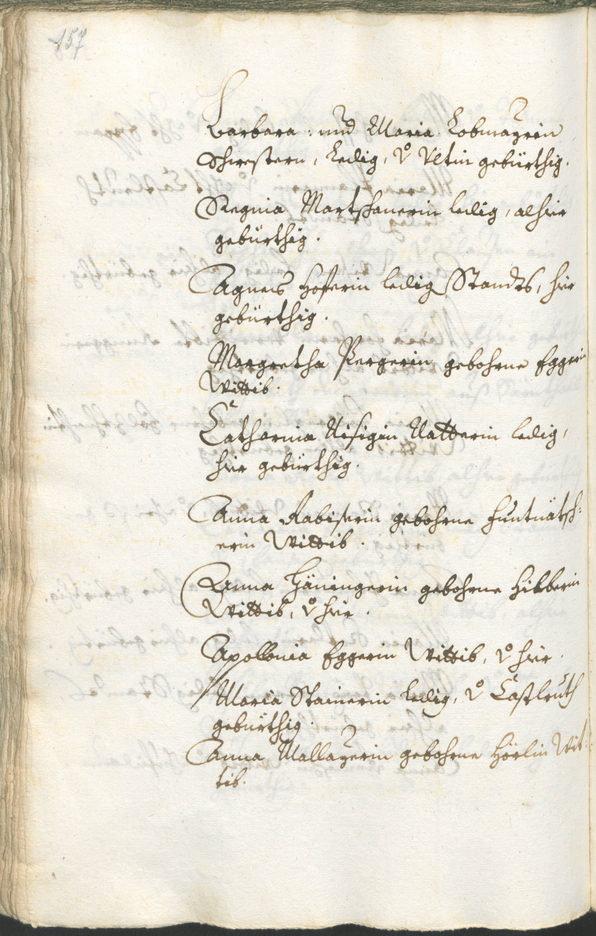 157
Barbara und Maria Lobmayrin
Schwestern, ledig, v Veltin gebürthig.
Regina Martschanerin ledig, alhier
gebürthig.
Agneis Hoferin ledig Standts, hier
gebürthig.
Margretha Pergerin gebohrne Eggerin
Wittib.
Catharina Natterin ledig,
hier gebürthig.
Anna Rabiserin gebohrne
erin Wittib.
Anna Häningerin gebohrne Hibberin
Wittib, v hier.
Apollonia Eggerin Wittib, v hier.
Maria Stainerin ledig, v Castlruth
gebürthig.
Anna Mallayerin gebohrne Hörlin Wit-
tib.